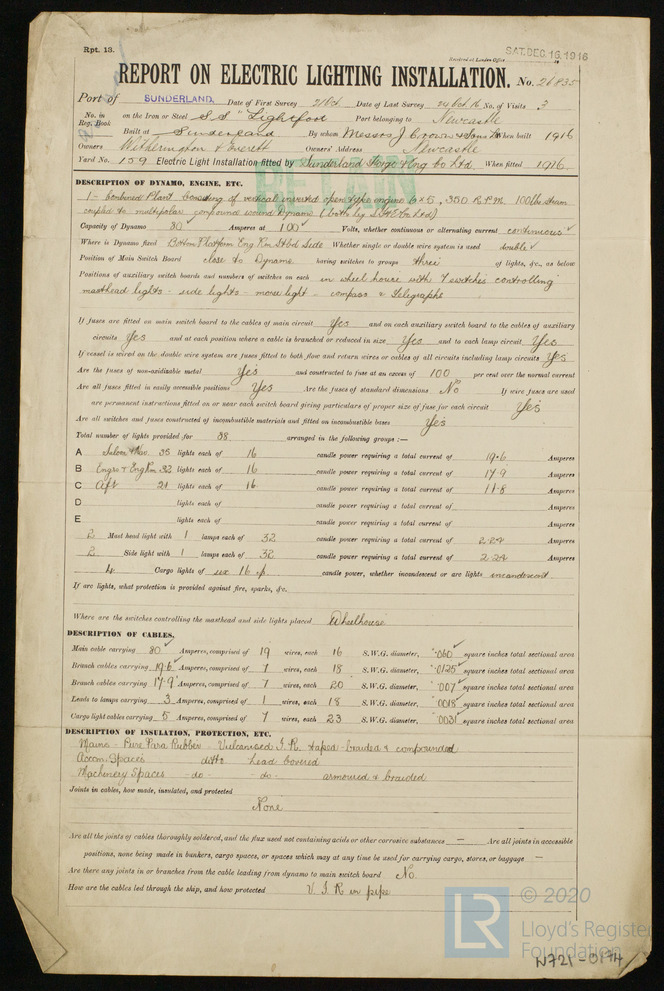 Rpt. 13.
Received at London Office
SAT. DEC. 16. 1916
REPORT ON ELECTRIC LIGHTING INSTALLATION. No. 26835
Port of SUNDERLAND. Date of First Survey 21 Oct. Date of Last Survey 24 Oct 16 No. of Visits 3
No. in Reg. Book on the Iron or Steel S.S "Lightfoot Port belonging to Newcastle
Built at Sunderland By whom Messrs J. Crown & Sons Ltd When built 1916
Owners Witherington & Everett Owners' Address Newcastle
Yard No. 159 Electric Light Installation fitted by Sunderland Forge & Eng Co Ltd. When fitted 1916.
RETAIN
DESCRIPTION OF DYNAMO, ENGINE, ETC.
1 - Combined Plant Consisting of vertical inverted open type engine 6 x 5, 350 R.P.M. 100lbs steam
coupled to multipolar compound wound Dynamo (both by S.F. & E. Co Ltd)
Capacity of Dynamo 80 Amperes at 100 Volts, whether continuous or alternating current continuous
Where is Dynamo fixed Bottom Platform Eng Rm Stbd Side Whether single or double wire system is used double
Position of Main Switch Board close to Dynamo having switches to groups three of lights, &c., as below
Positions of auxiliary switch boards and numbers of switches on each in wheel house with 7 switches controlling
masthead lights - side lights - morse light - compass & Telegraphs
If fuses are fitted on main switch board to the cables of main circuit Yes and on each auxiliary switch board to the cables of auxiliary
circuits Yes and at each position where a cable is branched or reduced in size Yes and to each lamp circuit Yes
If vessel is wired on the double wire system are fuses fitted to both flow and return wires or cables of all circuits including lamp circuits Yes
Are the fuses of non-oxidizable metal Yes and constructed to fuse at an excess of 100 per cent over the normal current
Are all fuses fitted in easily accessible positions Yes Are the fuses of standard dimensions No If wire fuses are used
are permanent instructions fitted on or near each switch board giving particulars of proper size of fuse for each circuit Yes
Are all switches and fuses constructed of incombustible materials and fitted on incombustible bases Yes
Total number of lights provided for 88 arranged in the following groups :—
A Saloon & Nav. 35 lights each of 16 candle power requiring a total current of 19.6 Amperes
B Engrs & Eng Rm 32 lights each of 16 candle power requiring a total current of 17.9 Amperes
C Aft 21 lights each of 16 candle power requiring a total current of 11.8 Amperes
D lights each of candle power requiring a total current of Amperes
E lights each of candle power requiring a total current of Amperes
2 Mast head light with 1 lamps each of 32 candle power requiring a total current of 2.24 Amperes
2 Side light with 1 lamps each of 32 candle power requiring a total current of 2.24 Amperes
4 Cargo lights of six 16 cp. candle power, whether incandescent or arc lights incandescent
If arc lights, what protection is provided against fire, sparks, &c.
Where are the switches controlling the masthead and side lights placed Wheelhouse
DESCRIPTION OF CABLES.
Main cable carrying 80 Amperes, comprised of 19 wires, each 16 S.W.G. diameter, .060 square inches total sectional area
Branch cables carrying 19.6 Amperes, comprised of 7 wires, each 18 S.W.G. diameter, .0125 square inches total sectional area
Branch cables carrying 17.9 Amperes, comprised of 7 wires, each 20 S.W.G. diameter, .007 square inches total sectional area
Leads to lamps carrying 3 Amperes, comprised of 1 wires, each 18 S.W.G. diameter, .0018 square inches total sectional area
Cargo light cables carrying 5 Amperes, comprised of 7 wires, each 23 S.W.G. diameter, .0031 square inches total sectional area
DESCRIPTION OF INSULATION, PROTECTION, ETC.
Mains - Pure Para Rubber - Vulcanised I.R. taped - braided & compounded
Accom. Spaces ditto Lead covered
Machinery Spaces - do - - do - armoured & braided
Joints in cables, how made, insulated, and protected
None
Are all the joints of cables thoroughly soldered, and the flux used not containing acids or other corrosive substances — Are all joints in accessible
positions, none being made in bunkers, cargo spaces, or spaces which may at any time be used for carrying cargo, stores, or baggage —
Are there any joints in or branches from the cable leading from dynamo to main switch board No
How are the cables led through the ship, and how protected V.I.R in pipe
LR
© 2020
Lloyd's Register
Foundation
N721-0174